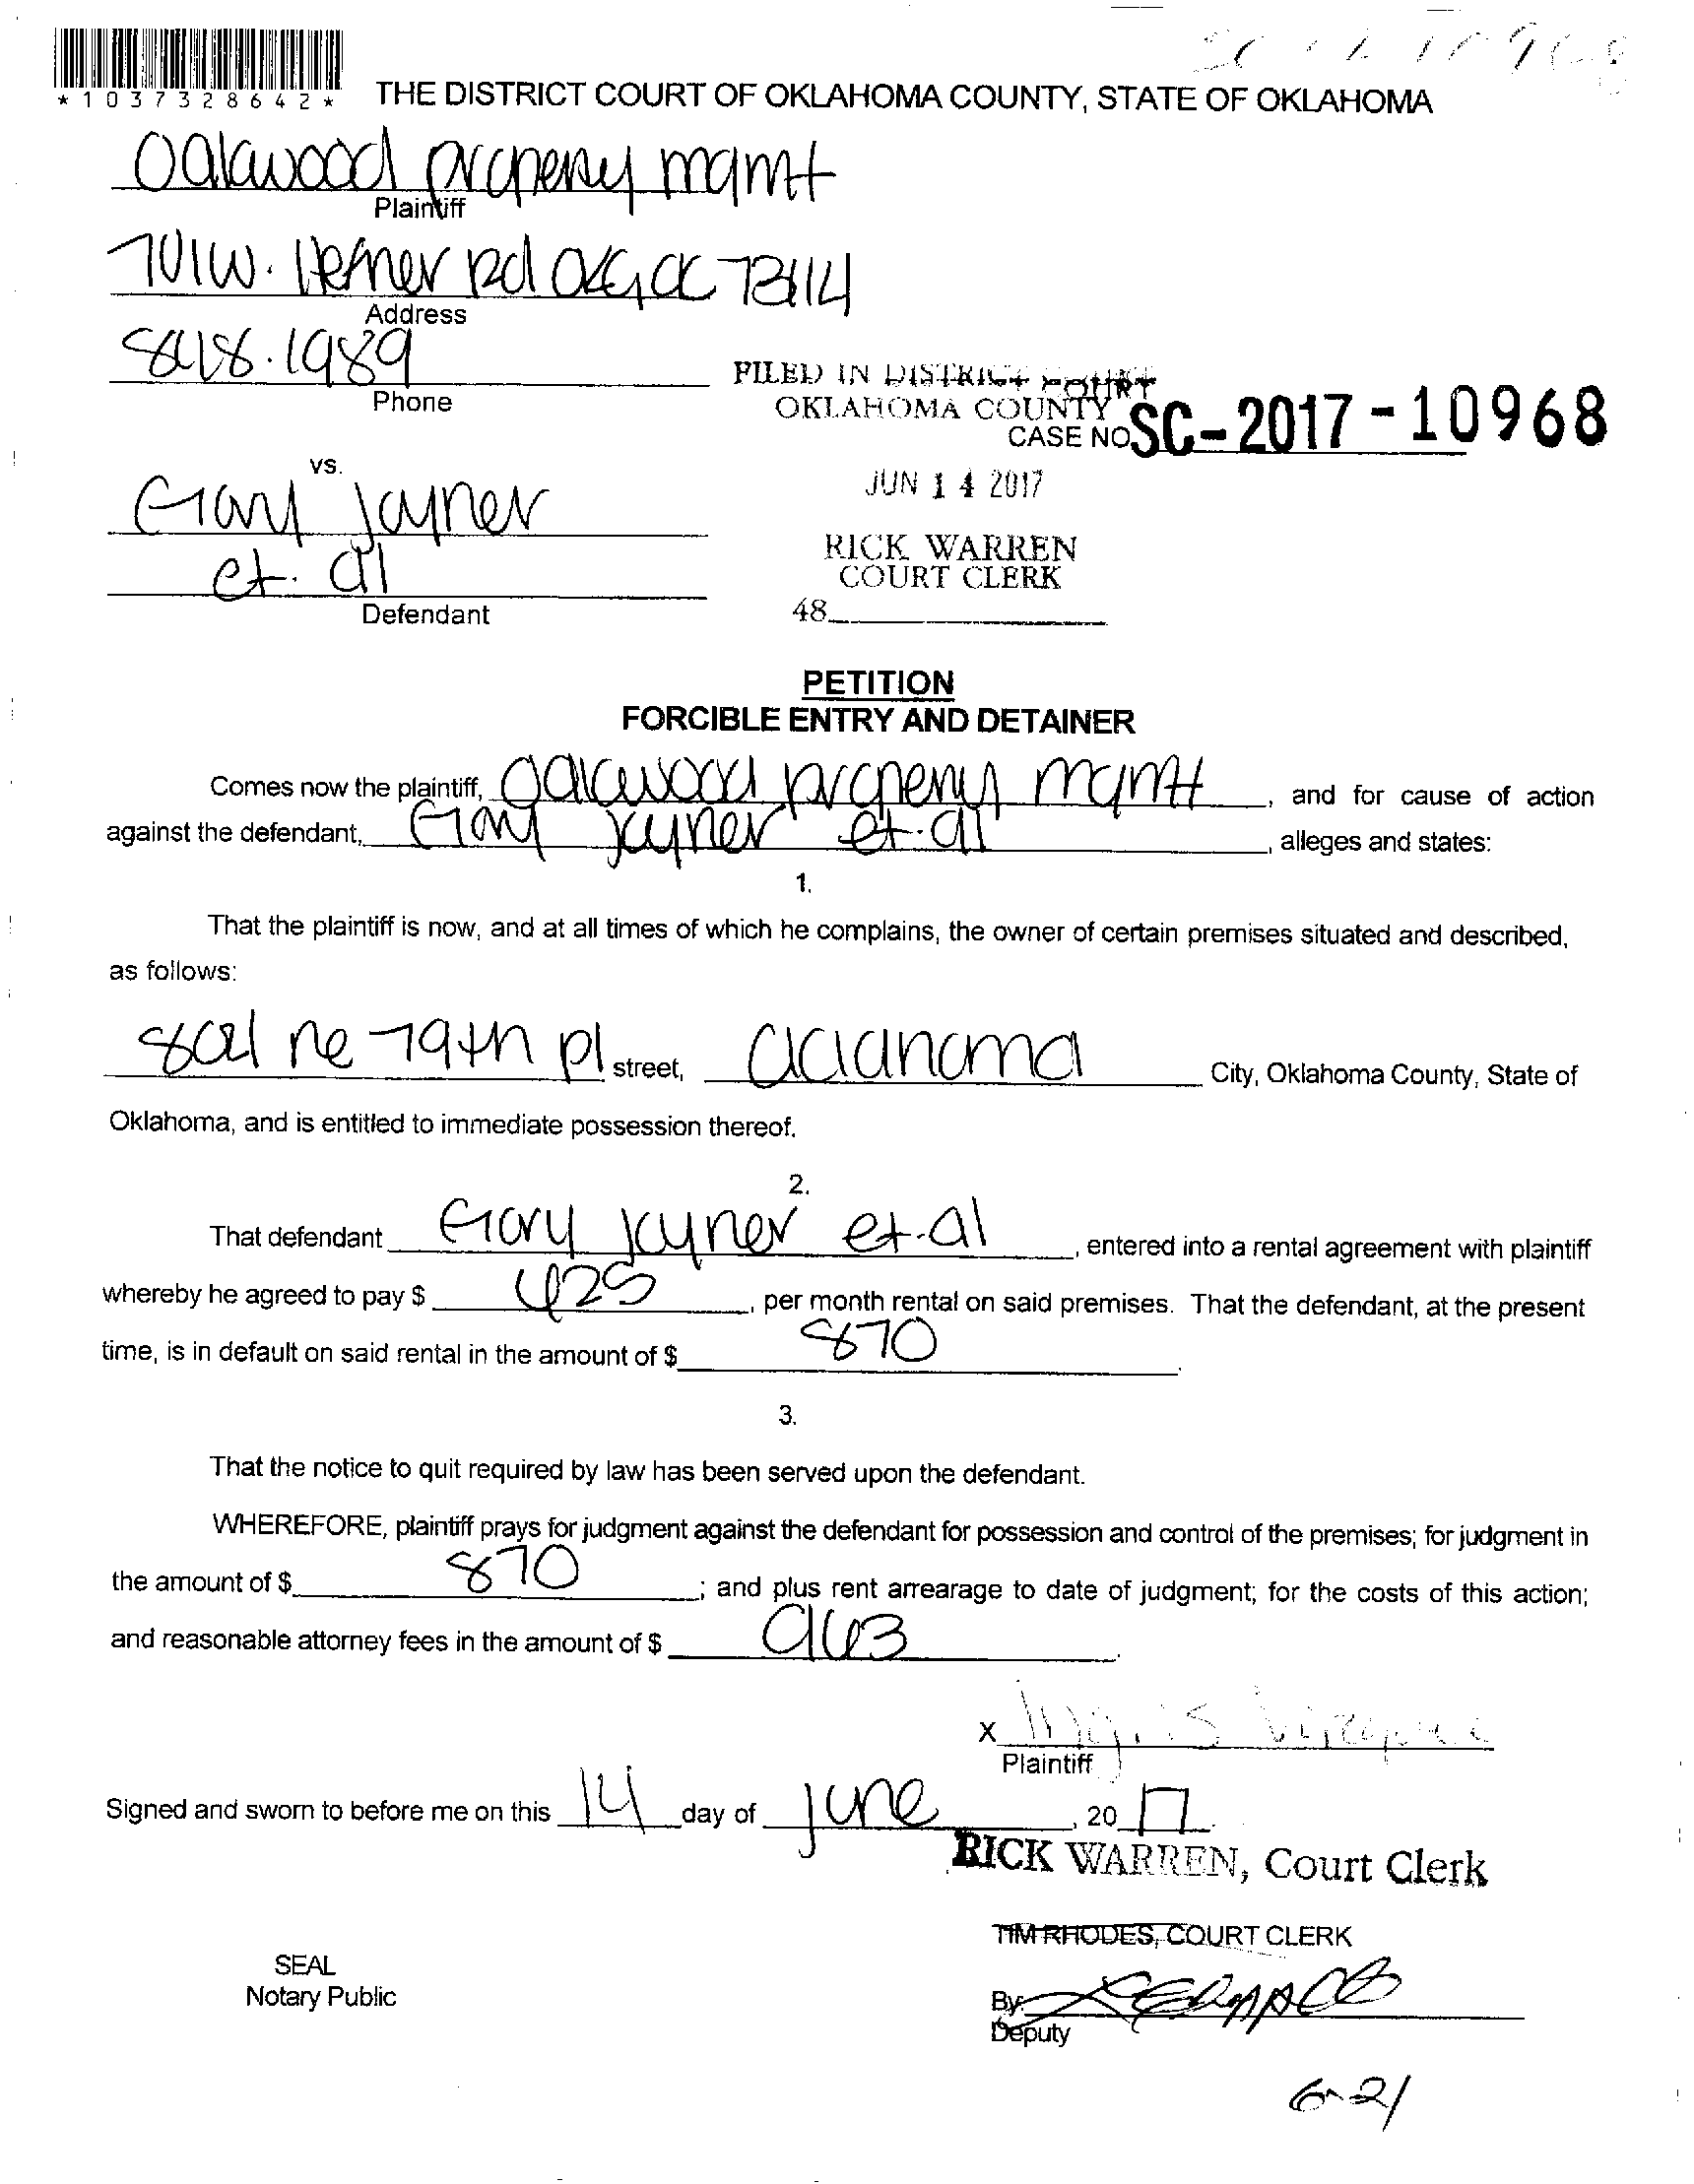 SC 17 10968
*1037328642*
THE DISTRICT COURT OF OKLAHOMA COUNTY, STATE OF OKLAHOMA
Oakwood property mgmt
Plaintiff
701 W. Hefner Rd OKC, OK 73114
Address
848.1989
Phone
FILED IN DISTRICT COURT
OKLAHOMA COUNTY
CASE NO. SC-2017-10968
JUN 14 2017
RICK WARREN
COURT CLERK
48
vs.
Gary Joyner
et. al
Defendant
PETITION
FORCIBLE ENTRY AND DETAINER
Comes now the plaintiff, Oakwood property mgmt, and for cause of action
against the defendant, Gary Joyner et. al, alleges and states:
1.
That the plaintiff is now, and at all times of which he complains, the owner of certain premises situated and described,
as follows:
ne 79th pl street, Oklahoma City, Oklahoma County, State of
Oklahoma, and is entitled to immediate possession thereof.
2.
That defendant Gary Joyner et. al, entered into a rental agreement with plaintiff
whereby he agreed to pay $ 425, per month rental on said premises. That the defendant, at the present
time, is in default on said rental in the amount of $ 870.
3.
That the notice to quit required by law has been served upon the defendant.
WHEREFORE, plaintiff prays for judgment against the defendant for possession and control of the premises; for judgment in
the amount of $ 870; and plus rent arrearage to date of judgment; for the costs of this action;
and reasonable attorney fees in the amount of $ 963.
X
Plaintiff
Signed and sworn to before me on this 14 day of June, 2017
RICK WARREN, Court Clerk
TIM RHODES, COURT CLERK
SEAL
Notary Public
By:
Deputy
6-21